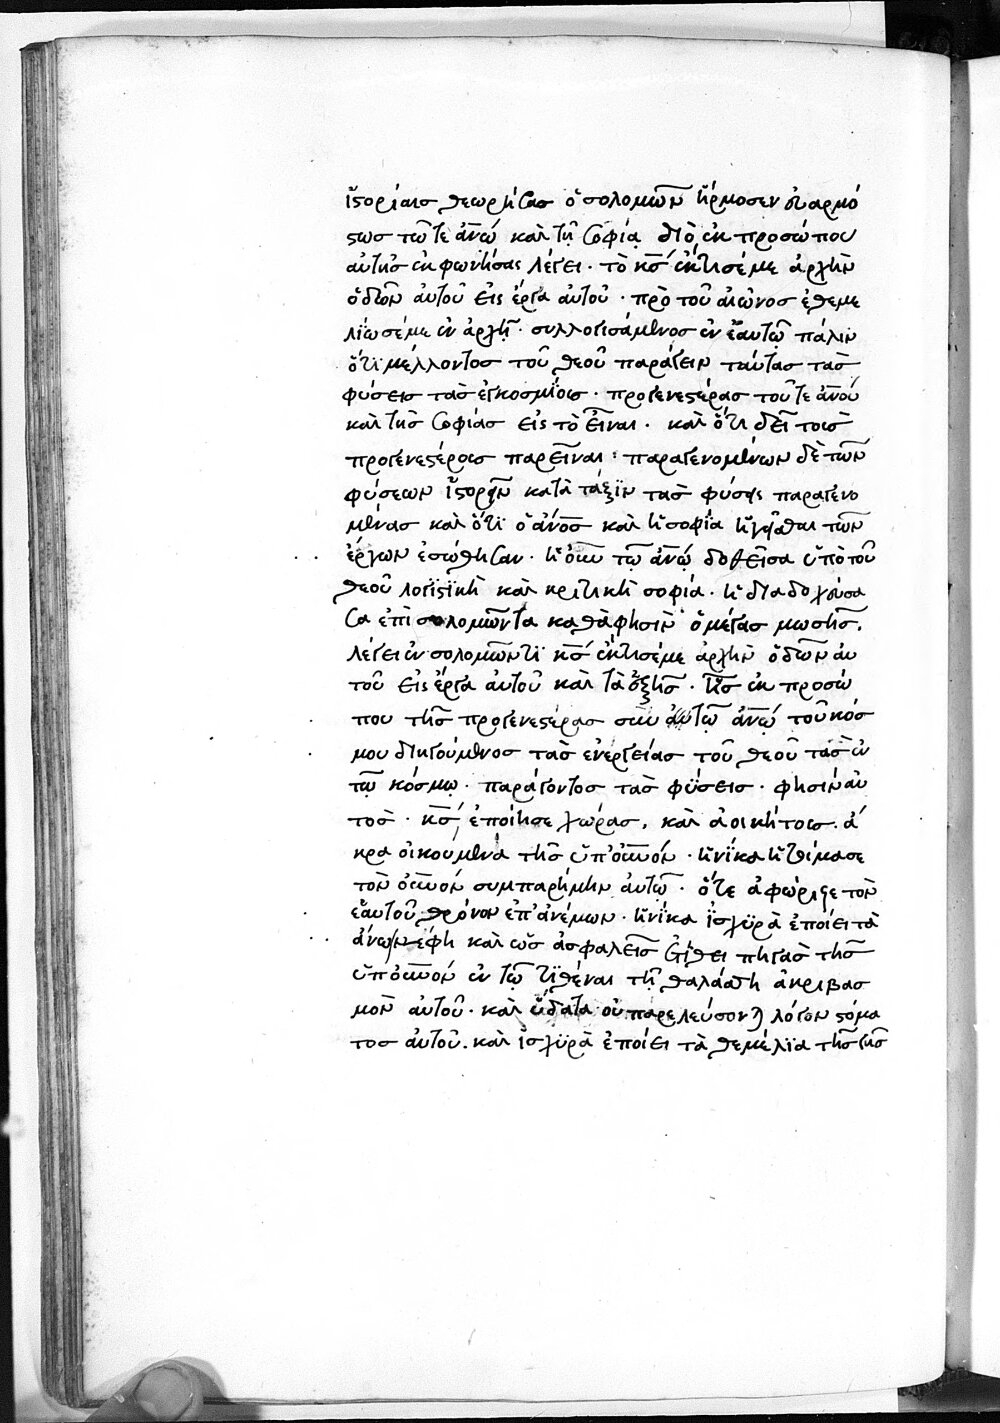 ἱστορίαις θεωρήσας ὁ σολομῶν ἥρμοσεν εὐαρμό
στως τῶ τε ἀνω καὶ τῇ σοφία διὸ ἐκ προσώπου
αὐτῆς ἐκφωνήσας λέγει · τὸ κς ἔκτισέ με ἀρχὴν
ὁδῶν αὐτοῦ εἰς ἔργα αὐτοῦ · πρὸ τοῦ αἰῶνος ἐθεμε
λίωσέ με ἐν ἀρχῇ · συλλογισάμενος ἐν ἑαυτῶ πάλιν
ὅτι μέλλοντος τοῦ θεοῦ παράγειν ταύτας τὰς
φύσεις τὰς ἐγκοσμίοις · προγενεστέρας τοῦ τε ἀνου
καὶ τῆς σοφίας εἰς τὸ εἶναι · καὶ ὅτι δεῖ τοῖς
προγενεστέροις παρεῖναι · παραγενομένων δὲ τῶν
φύσεων ἱστορεῖν κατὰ τάξιν τὰς φύσεις παραγενο
μένας καὶ ὅτι ὁ ἀνος καὶ ἡ σοφία τῶν
ἔργων ἐσώθησαν · ἡ οὖν τῶ ἀνω δοθεῖσα ὑπὸ τοῦ
θεοῦ λογιστικὴ καὶ κριτικὴ σοφία · ἡ διαδοχοῦσα
σα ἐπὶ σολομῶντα καθάφησιν ὁ μέγας μωσῆς.
λέγει ἐν σολομῶντι κς ἔκτισέ με ἀρχὴν ὁδῶν αὐ
τοῦ εἰς ἔργα αὐτοῦ καὶ τὰ ὀξῆς · ἐκ προσώ
που τῆς προγενεστέρας σὺν αὐτῶ ἀνω τοῦ κόσ
μου διηγούμενος τὰς ἐνεργείας τοῦ θεοῦ τὰς ἐν
τῶ κόσμω · παράγοντος τὰς φύσεις · φησὶν αὐ
τος · κς ἐποίησε χώρας, καὶ ἀοικήτοις · ἄ
κρα οἰκουμένα τῆς ὑπ' οὐνόν · ἡνίκα ἡτοίμασε
τὸν οὐνὸν συμπαρήμην αὐτῶ · ὅτε ἀφώριζε τὸν
ἑαυτοῦ θρόνον ἐπ' ἀνέμων · ἡνίκα ἰσχυρὰ ἐποίει τὰ
ἄνω νέφη καὶ ὡς ἀσφαλεῖς ἐτίθει πηγὰς τῆς
ὑπ' οὐνόν ἐν τῶ τιθέναι τῇ θαλάσση ἀκριβασ
μὸν αὐτοῦ · καὶ ὕδατα οὐ παρελεύσονται λόγον στόμα
τος αὐτοῦ. καὶ ἰσχυρὰ ἐποίει τὰ θεμέλια τῆς γῆς